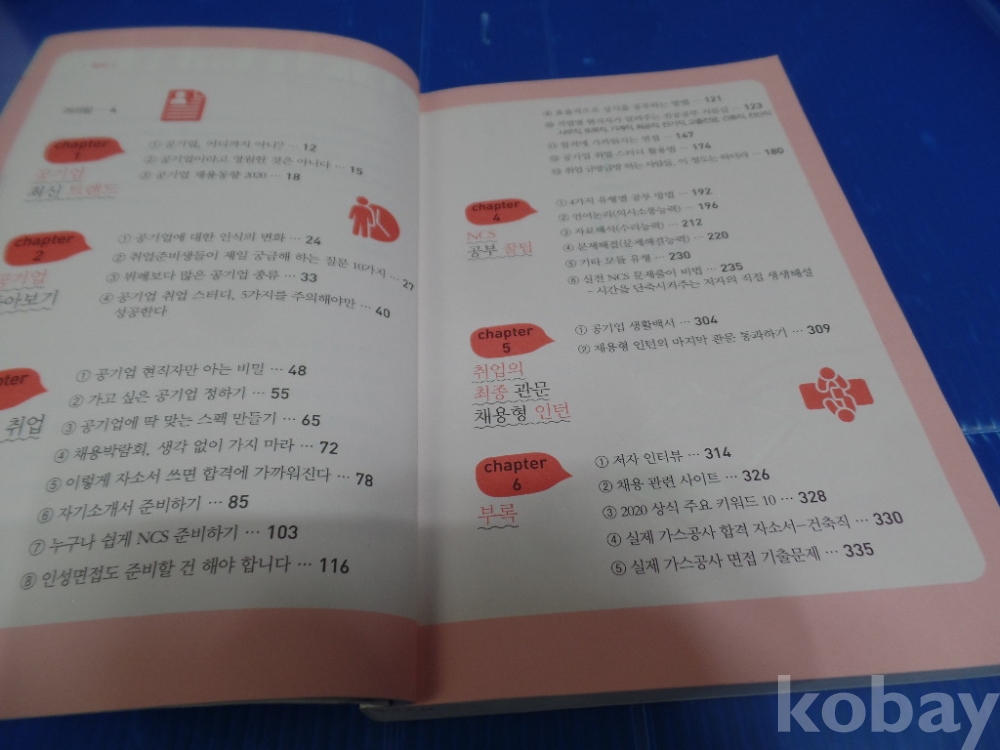 머리말 … 4
chapter
1
공기업
최신 트렌드
① 공기업, 어디까지 아니? … 12
② 공기업이라고 영원한 것은 아니다 … 15
③ 공기업 채용동향 2020 … 18
chapter
2
공기업
아보기
① 공기업에 대한 인식의 변화 … 24
② 취업준비생들이 제일 궁금해 하는 질문 10가지 … 27
③ 뷔페보다 많은 공기업 종류 … 33
④ 공기업 취업 스터디, 5가지를 주의해야만
성공한다 … 40
취업
① 공기업 현직자만 아는 비밀 … 48
② 가고 싶은 공기업 정하기 … 55
③ 공기업에 딱 맞는 스펙 만들기 … 65
④ 채용박람회, 생각 없이 가지 마라 … 72
⑤ 이렇게 자소서 쓰면 합격에 가까워진다 … 78
⑥ 자기소개서 준비하기 … 85
⑦ 누구나 쉽게 NCS 준비하기 … 103
⑧ 인성면접도 준비할 건 해야 합니다 … 116
⑨ 효율적으로 상식을 공부하는 방법 … 121
123
⑪ 합격에 가까워지는 면접 … 147
⑫ 공기업 취업 스터디 활용법 … 174
⑬ 취업 금방금방 하는 사람들, 이 정도는 하더라 … 180
chapter
4
NCS
공부 꿀팁
① 4가지 유형별 공부 방법 … 192
② 언어논리(의사소통능력) … 196
③ 자료해석(수리능력) … 212
④ 문제해결(문제해결능력) … 220
⑤ 기타 모듈 유형 … 230
⑥ 실전 NCS 문제풀이 비법 … 235
- 시간을 단축시켜주는 저자의 직접 생생해설
chapter
5
취업의
최종 관문
채용형 인턴
① 공기업 생활백서 … 304
② 채용형 인턴의 마지막 관문 통과하기 … 309
chapter
6
부록
① 저자 인터뷰 … 314
② 채용 관련 사이트 … 326
③ 2020 상식 주요 키워드 10 … 328
④ 실제 가스공사 합격 자소서-건축직 … 330
⑤ 실제 가스공사 면접 기출문제 … 335
kobay